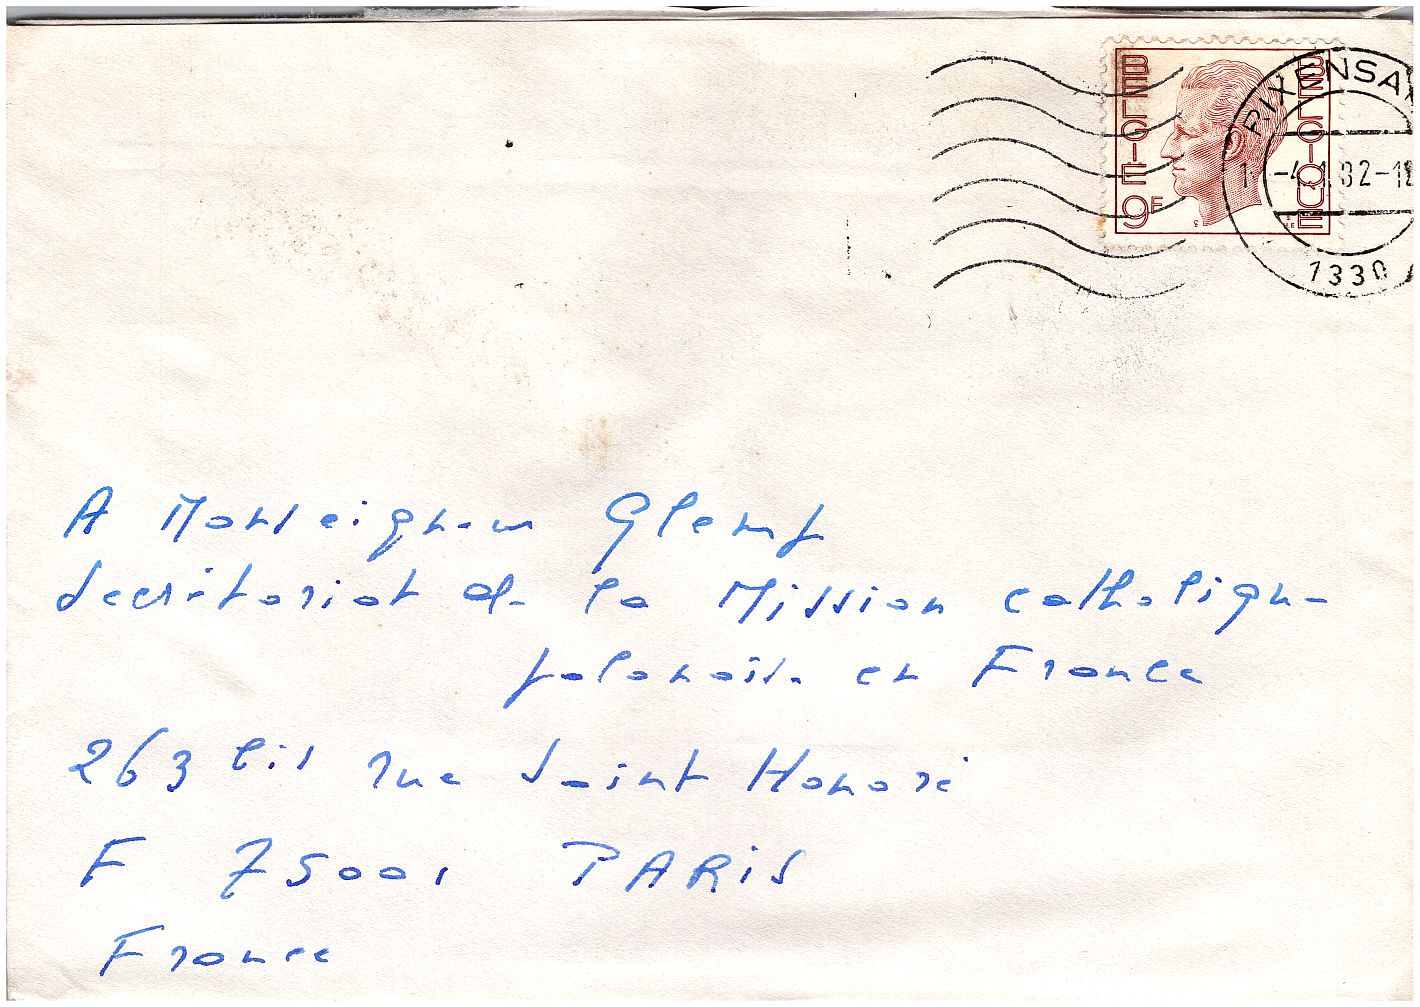 BELGIE
BELGIQUE
9F
RIXENSA
1 -4.1.82-12
1330
A Monseigneur Glemp
Secrétariat de la Mission catholique
polonaise en France
263 bis rue Saint Honoré
F 75001 PARIS
France